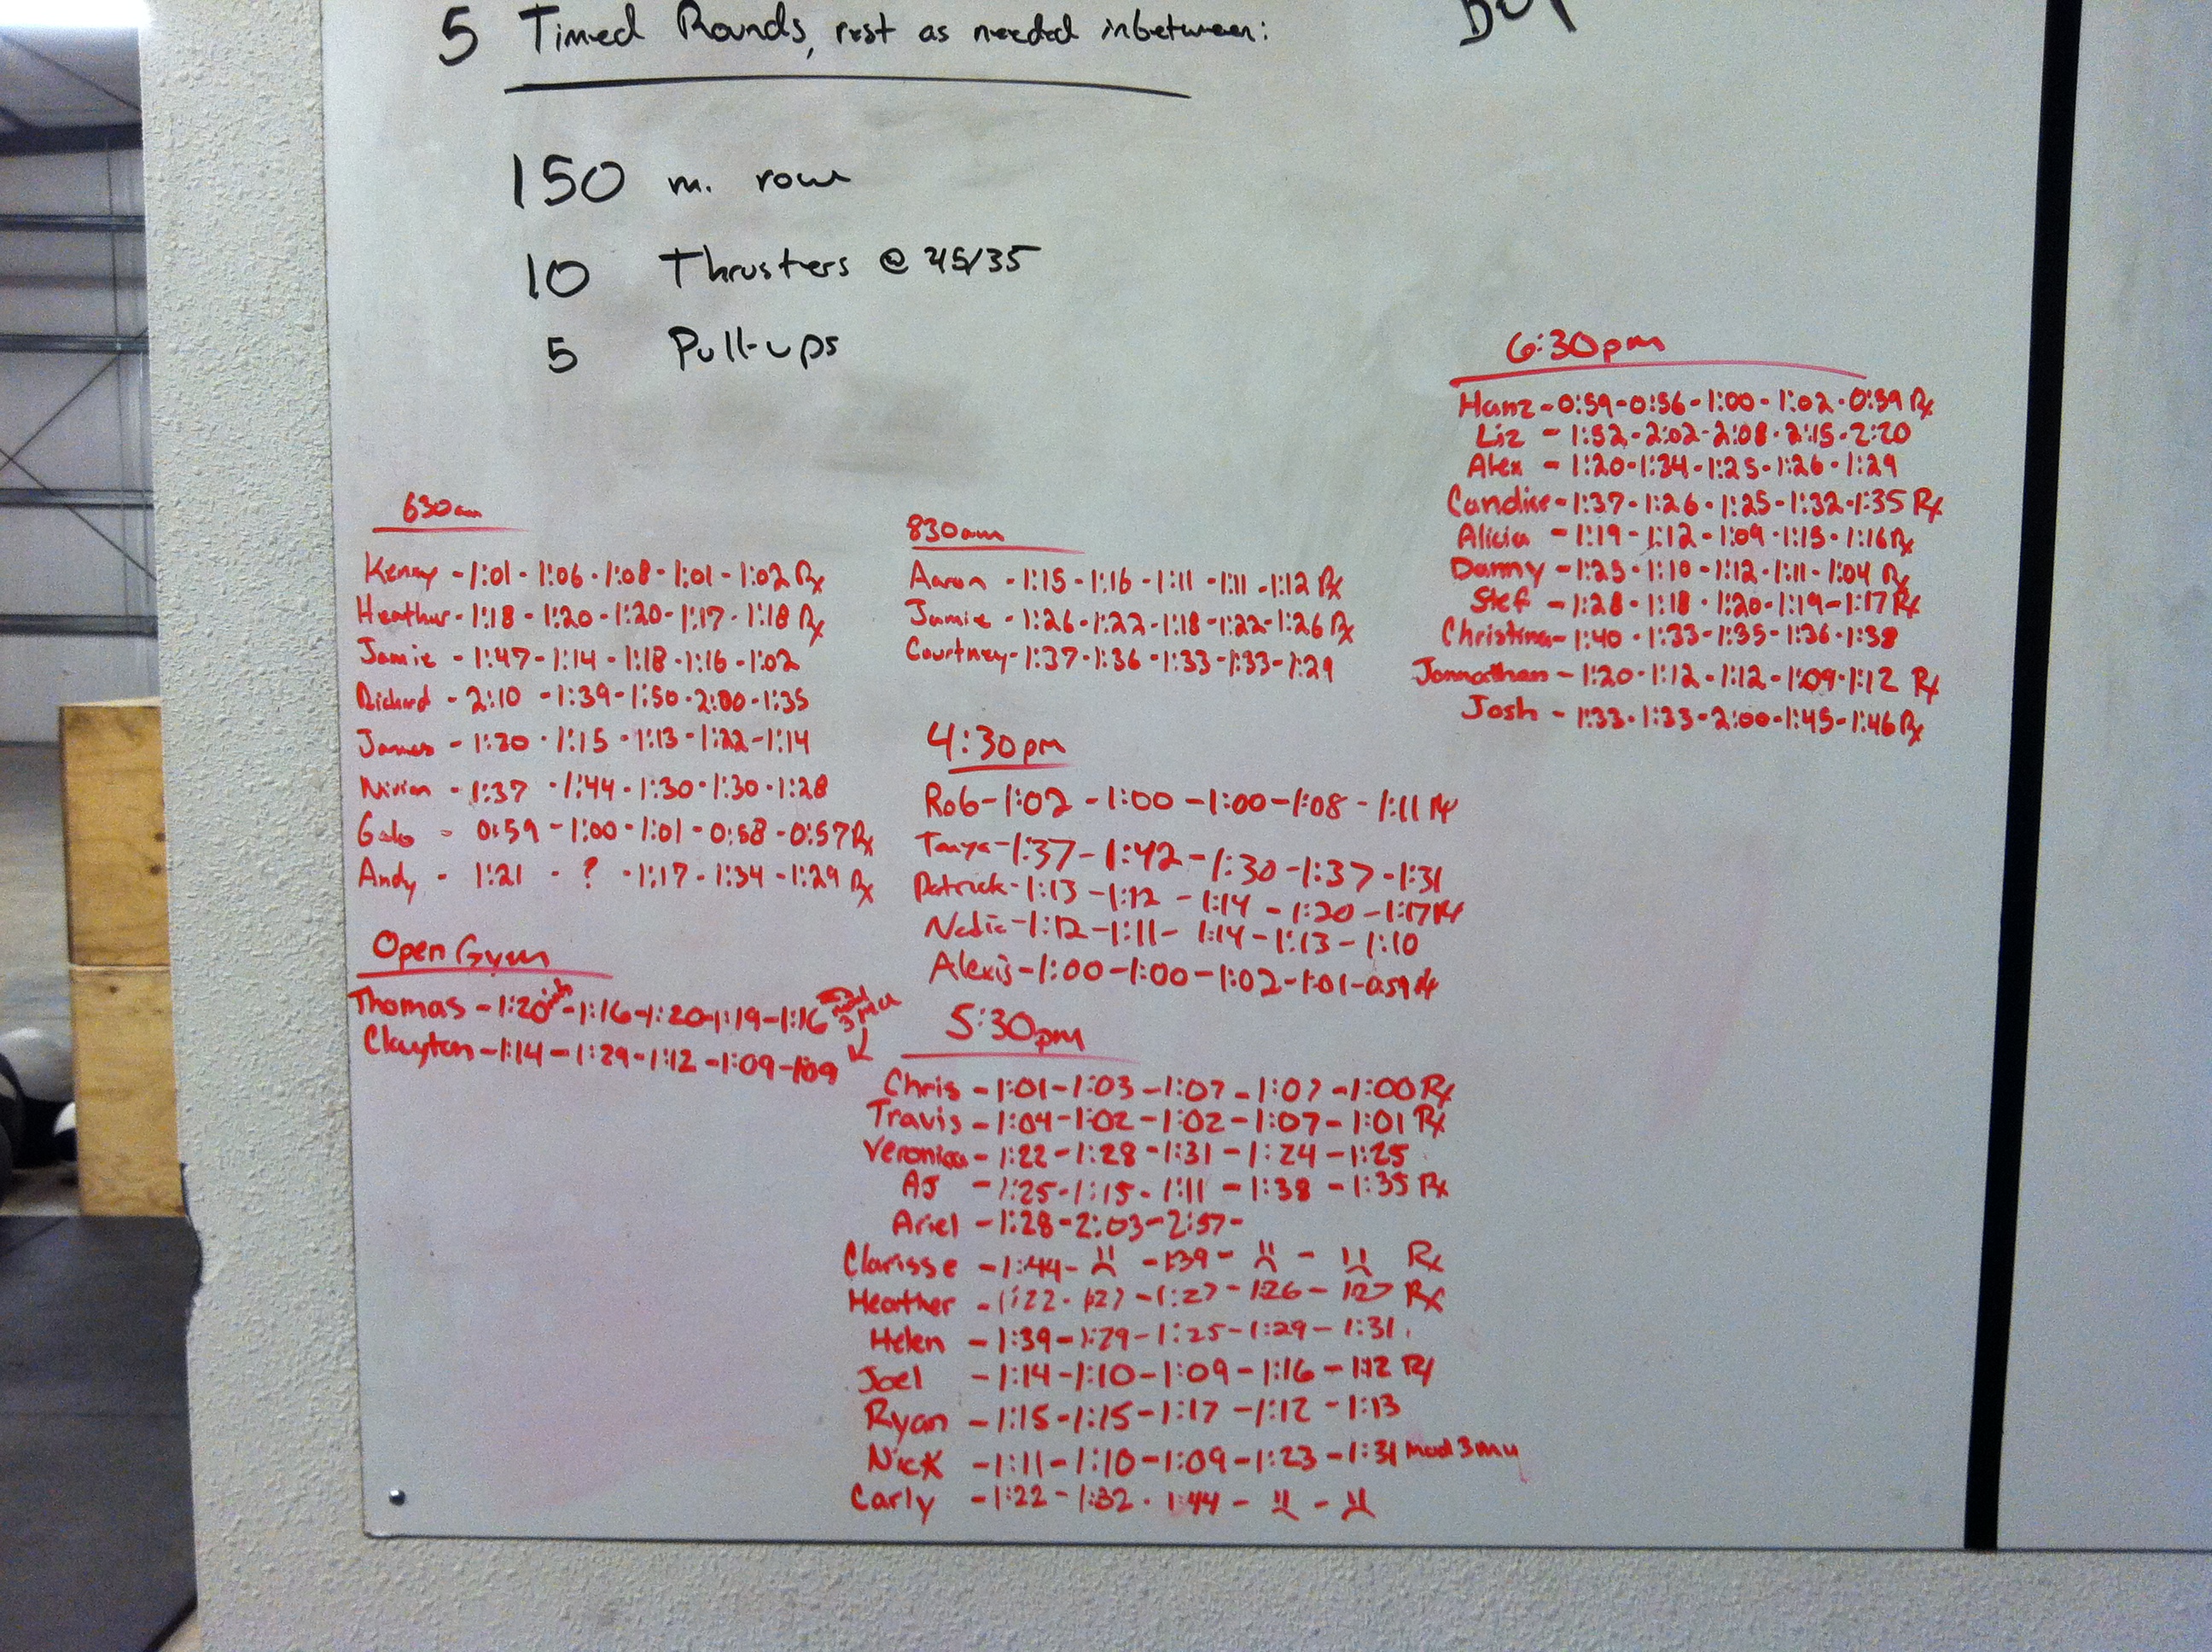 5 Timed Rounds, rest as needed inbetween:
150 m. row
10 Thrusters @ 45/35
5 Pull-ups
630am
Kenny - 1:01 - 1:06 - 1:08 - 1:01 - 1:02 Rx
Heather - 1:18 - 1:20 - 1:20 - 1:17 - 1:18 Rx
Jamie - 1:47 - 1:14 - 1:18 - 1:16 - 1:02
Richard - 2:10 - 1:39 - 1:50 - 2:00 - 1:35
James - 1:20 - 1:15 - 1:13 - 1:22 - 1:14
- 1:37 - 1:44 - 1:30 - 1:30 - 1:28
- 0:59 - 1:00 - 1:01 - 0:58 - 0:57 Rx
Andy - 1:21 - ? - 1:17 - 1:34 - 1:29 Rx
Open Gym
Thomas - 1:20 - 1:16 - 1:20 - 1:19 - 1:16
Clayton - 1:14 - 1:29 - 1:12 - 1:09 - 1:09
830am
Aaron - 1:15 - 1:16 - 1:11 - 1:11 - 1:12 Rx
Jamie - 1:26 - 1:22 - 1:18 - 1:22 - 1:26 Rx
Courtney - 1:37 - 1:36 - 1:33 - 1:33 - 1:29
4:30pm
Rob - 1:02 - 1:00 - 1:00 - 1:08 - 1:11 Rx
Tanya - 1:37 - 1:42 - 1:30 - 1:37 - 1:31
Patrick - 1:13 - 1:12 - 1:14 - 1:20 - 1:17 Rx
Nadia - 1:12 - 1:11 - 1:14 - 1:13 - 1:10
Alexis - 1:00 - 1:00 - 1:02 - 1:01 - 0:59 Rx
5:30pm
Chris - 1:01 - 1:03 - 1:07 - 1:07 - 1:00 Rx
Travis - 1:04 - 1:02 - 1:02 - 1:07 - 1:01 Rx
Veronica - 1:22 - 1:28 - 1:31 - 1:24 - 1:25
AJ - 1:25 - 1:15 - 1:11 - 1:38 - 1:35 Rx
Ariel - 1:28 - 2:03 - 2:57 -
Clarisse - 1:44 - - 1:39 - - Rx
Heather - 1:22 - 1:27 - 1:27 - 1:26 - 1:27 Rx
Helen - 1:39 - 1:29 - 1:25 - 1:29 - 1:31
Joel - 1:14 - 1:10 - 1:09 - 1:16 - 1:12 Rx
Ryan - 1:15 - 1:15 - 1:17 - 1:12 - 1:13
Nick - 1:11 - 1:10 - 1:09 - 1:23 - 1:31 mod 3mu
Carly - 1:22 - 1:32 - 1:44 - -
6:30pm
Hanz - 0:59 - 0:56 - 1:00 - 1:02 - 0:59 Rx
Liz - 1:52 - 2:02 - 2:08 - 2:15 - 2:20
Alex - 1:20 - 1:34 - 1:25 - 1:26 - 1:29
Candice - 1:37 - 1:26 - 1:25 - 1:32 - 1:35 Rx
Alicia - 1:19 - 1:12 - 1:09 - 1:15 - 1:16 Rx
Danny - 1:25 - 1:10 - 1:12 - 1:11 - 1:04 Rx
Stef - 1:28 - 1:18 - 1:20 - 1:19 - 1:17 Rx
Christina - 1:40 - 1:33 - 1:35 - 1:36 - 1:38
Jonnathan - 1:20 - 1:12 - 1:12 - 1:09 - 1:12 Rx
Josh - 1:33 - 1:33 - 2:00 - 1:45 - 1:46 Rx